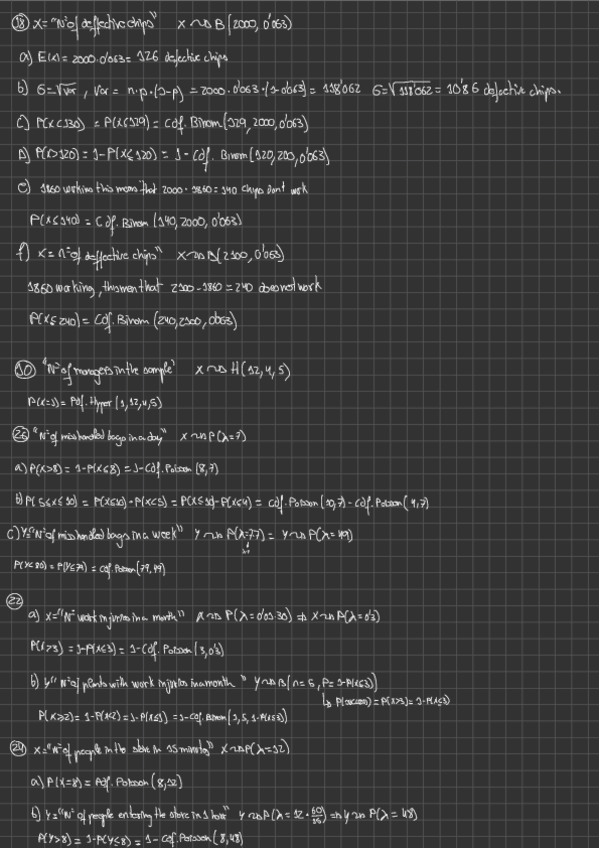 18) X = "Nº of deffective chips" X ~ B(2000, 0'063)
a) E(x) = 2000·0'063 = 126 defective chips
b) σ = √var, Var = n·p·(1-p) = 2000·0'063·(1-0'063) = 118'062 σ = √118'062 = 10'86 defective chips.
c) P(x<130) = P(x≤129) = Cdf. Binom(129, 2000, 0'063)
d) P(x>120) = 1-P(x≤120) = 1 - Cdf. Binom(120, 200, 0'063)
e) 1860 working this means that 2000 - 1860 = 140 chips don't work
P(x≤140) = Cdf. Binom(140, 2000, 0'063)
f) X = nº of deffective chips" X ~ B(2100, 0'063)
1860 working, this men that 2100 - 1860 = 240 does not work
P(x≤240) = Cdf. Binom(240, 2100, 0'063)
10) "Nº of managers in the sample" X ~ H(12, 4, 5)
P(x=1) = Pdf. Hyper(1, 12, 4, 5)
26) "Nº of misshandled bags in a day" X ~ P(λ=7)
a) P(x>8) = 1-P(x≤8) = 1-Cdf. Poisson(8, 7)
b) P(5≤x≤10) = P(x≤10) - P(x<5) = P(x≤10) - P(x≤4) = Cdf. Poisson(10, 7) - Cdf. Poisson(4, 7)
c) Y = "Nº of misshandled bags in a week" Y ~ P(λ=7·7) = Y ~ P(λ=49)
P(Y<80) = P(Y≤79) = Cdf. Poisson(79, 49)
22)
a) X = "Nº work injuries in a month" X ~ P(λ=0'01·30) ⇒ X ~ P(λ=0'3)
P(x>3) = 1-P(x≤3) = 1-Cdf. Poisson(3, 0'3)
b) Y "Nº of plants with work injuries in a month" Y ~ B(n=5, P=1-P(x≤3))
↳ = P(x>3) = 1-P(x≤3)
P(x≥2) = 1-P(x<2) = 1-P(x≤1) = 1-Cdf. Binom(1, 5, 1-P(x≤3))
24) X = "Nº of people in the store in 15 minutes" X ~ P(λ=12)
a) P(x=8) = Pdf. Poisson(8, 12)
b) Y = "Nº of people entering the store in 1 hour" Y ~ P(λ=12·60/15) ⇒ Y ~ P(λ=48)
P(Y>8) = 1-P(Y≤8) = 1-Cdf. Poisson(8, 48)